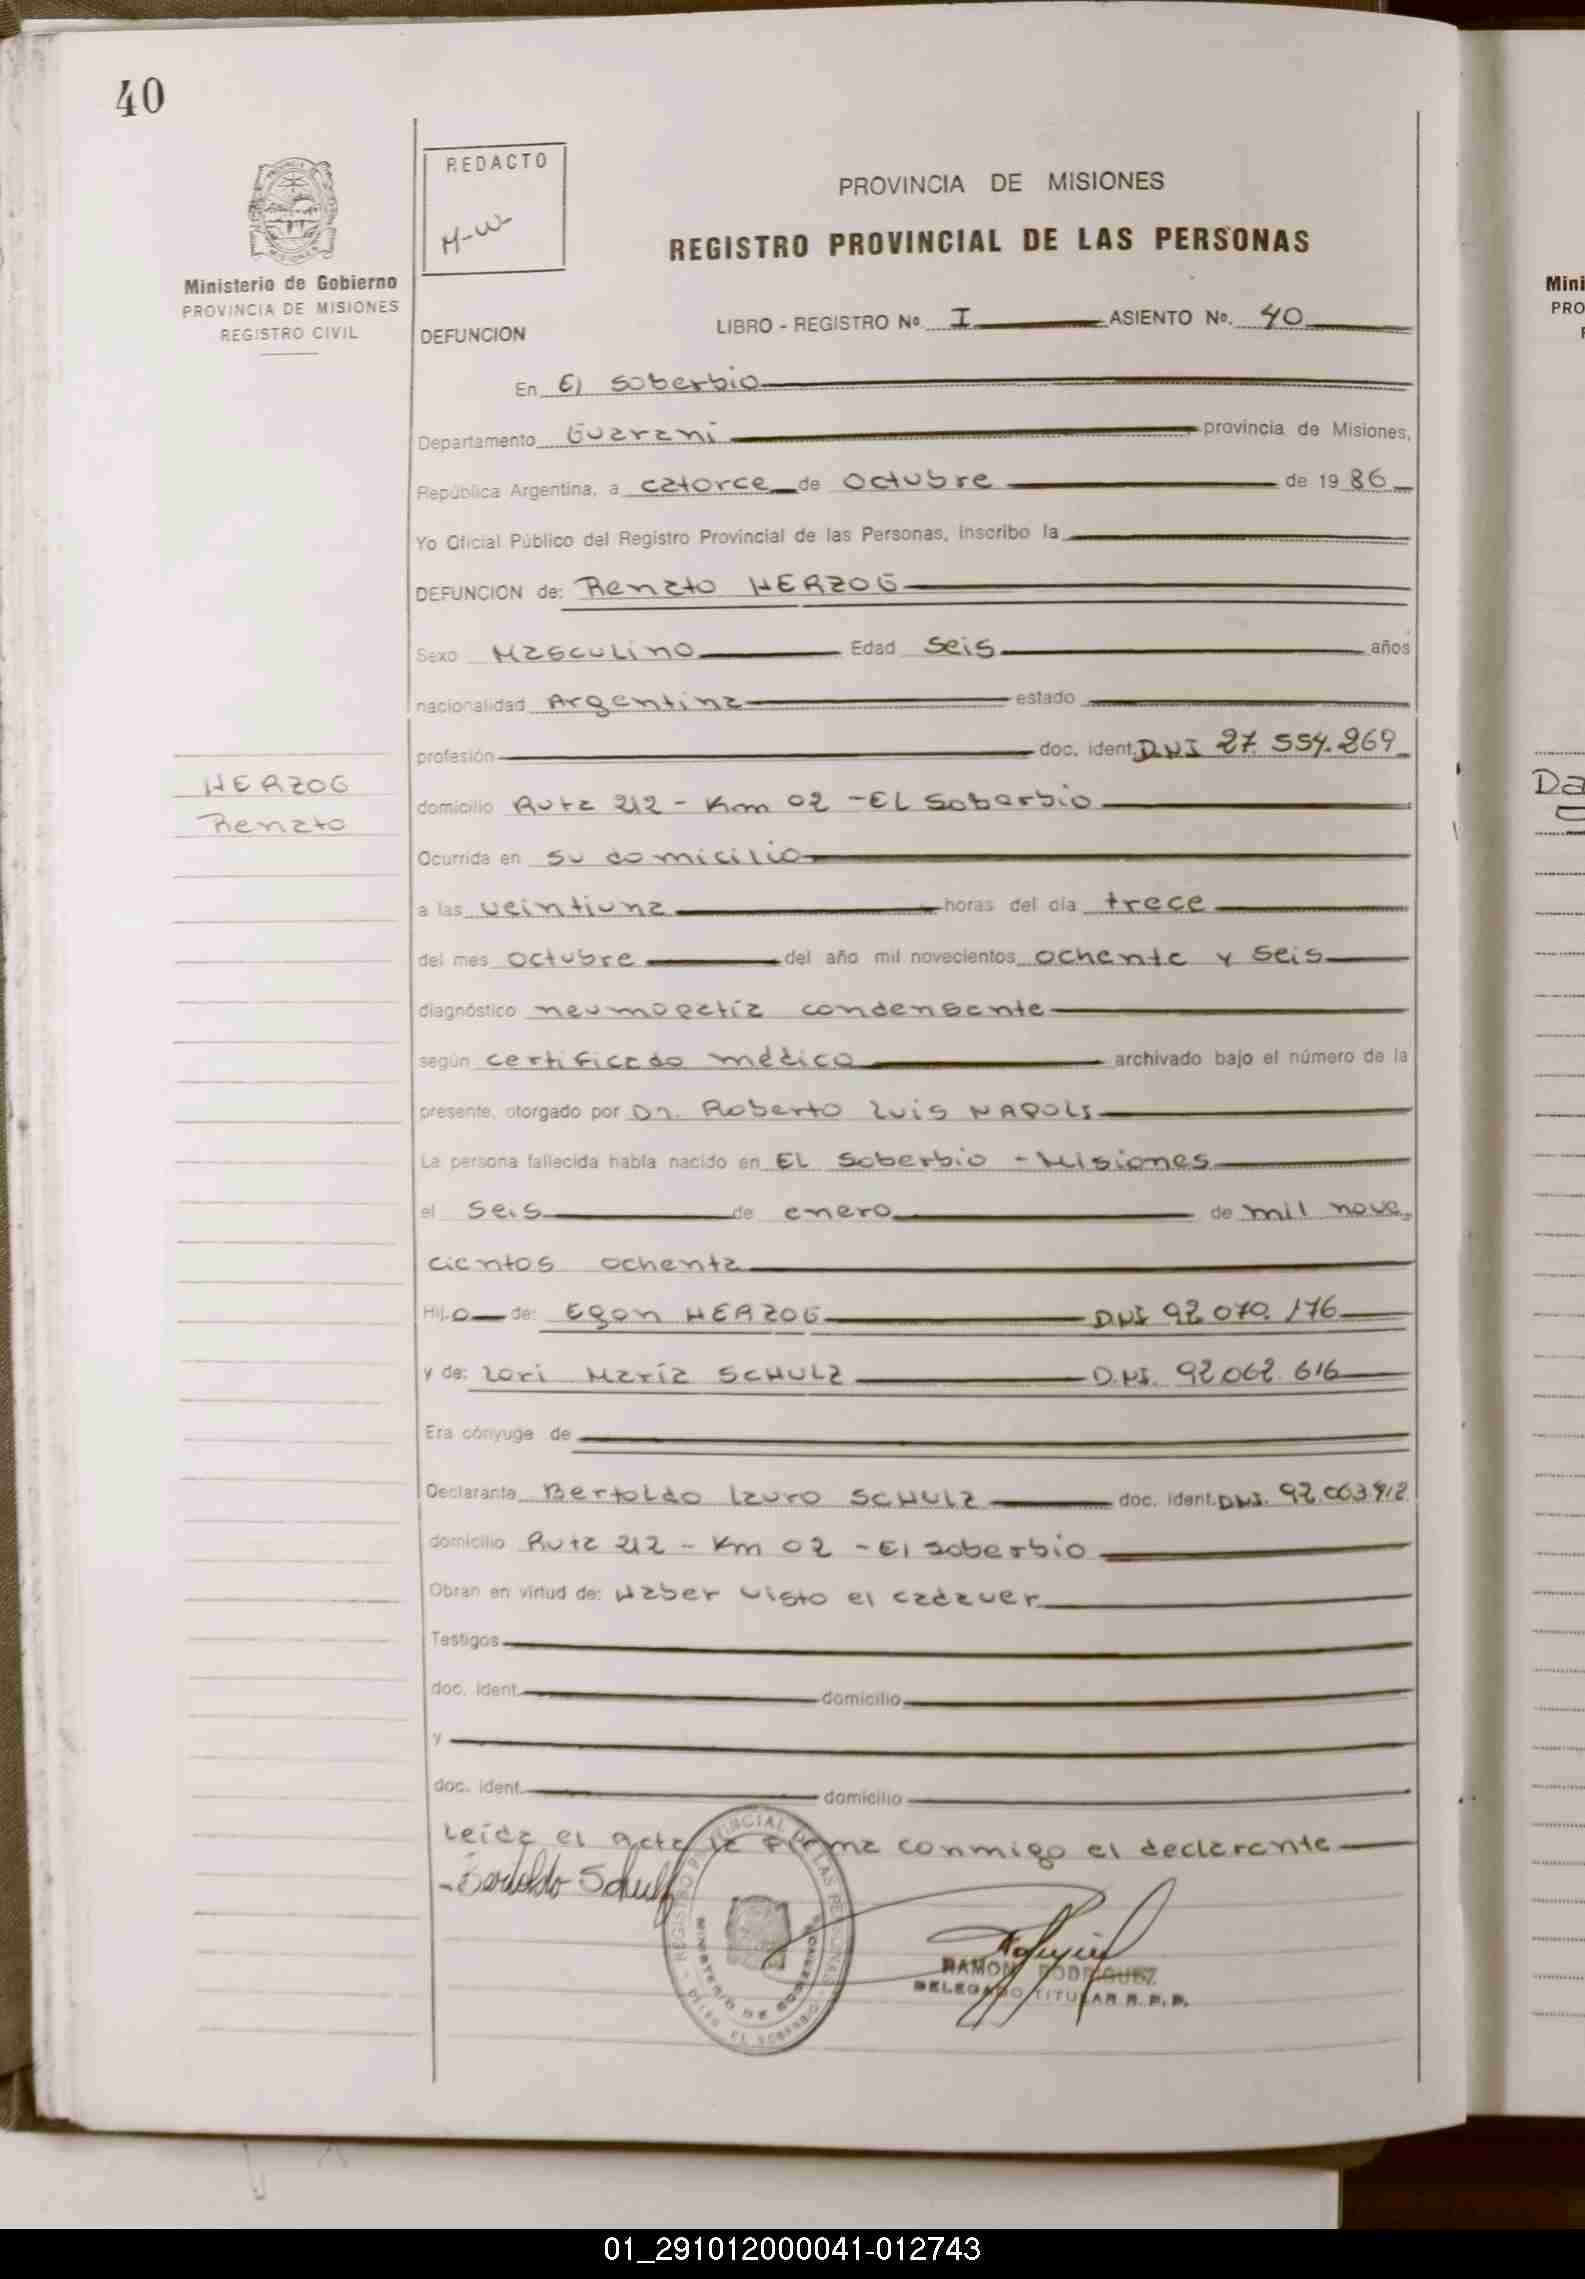 40
REDACTO
M-W
PROVINCIA DE MISIONES
REGISTRO PROVINCIAL DE LAS PERSONAS
Ministerio de Gobierno
PROVINCIA DE MISIONES
REGISTRO CIVIL
DEFUNCION LIBRO - REGISTRO Nº I ASIENTO Nº. 40
En El Soberbio
Departamento Guarani provincia de Misiones,
República Argentina, a catorce de Octubre de 19 86
Yo Oficial Público del Registro Provincial de las Personas, inscribo la
DEFUNCION de: Renato HERZOG
Sexo Masculino Edad Seis años
nacionalidad Argentina estado
profesión doc. ident. DNI 27.554.269
HERZOG
Renato
domicilio Ruta 212 - Km 02 - EL Soberbio
Ocurrida en su domicilio
a las veintiuna horas del día trece
del mes octubre del año mil novecientos ochenta y seis
diagnóstico neumopatía condensante
según certificado médico archivado bajo el número de la
presente, otorgado por Dr. Roberto Luis NAPOLI
La persona fallecida había nacido en EL Soberbio - Misiones
el seis de enero de mil nove,
cientos ochenta
Hijo de: Egon HERZOG DNI 92.070.176
y de: Lori María SCHULZ D.N.I. 92.062.616
Era cónyuge de
Declarante Bertoldo Lauro SCHULZ doc. ident. DNI. 92.063.912
domicilio Ruta 212 - Km 02 - El Soberbio
Obran en virtud de: Haber visto el cadaver
Testigos
doc. ident. domicilio
y
doc. ident. domicilio
Leída el acta la firma conmigo el declarante
Bertoldo Schulz
REGISTRO PROVINCIAL DE LAS PERSONAS
MINISTERIO DE GOBIERNO
DELEG. EL SOBERBIO
RAMON RODRIGUEZ
DELEGADO TITULAR R. P. P.
Mini
PRO
Da
01_291012000041-012743